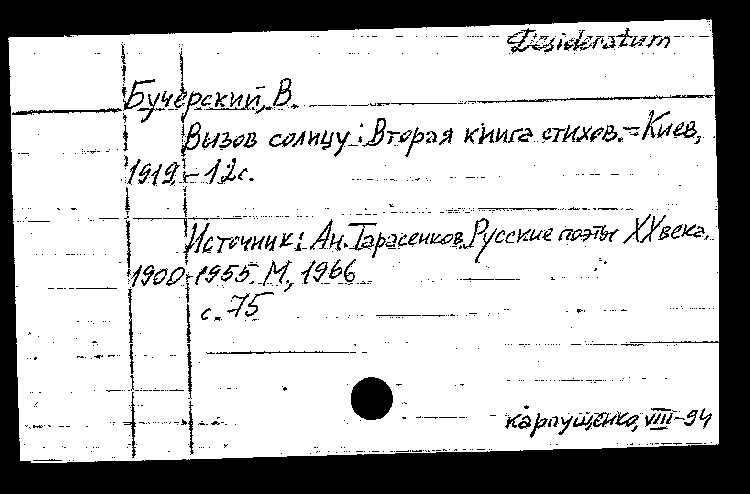 Desideratum
Бучерский, В.
Вызов солнцу: Вторая книга стихов. = Киев,
1919. - 12 с.
Источник: Ан. Тарасенков. Русские поэты XX века.
1900-1955. М., 1966
с. 75
Карпущенко, VIII-94